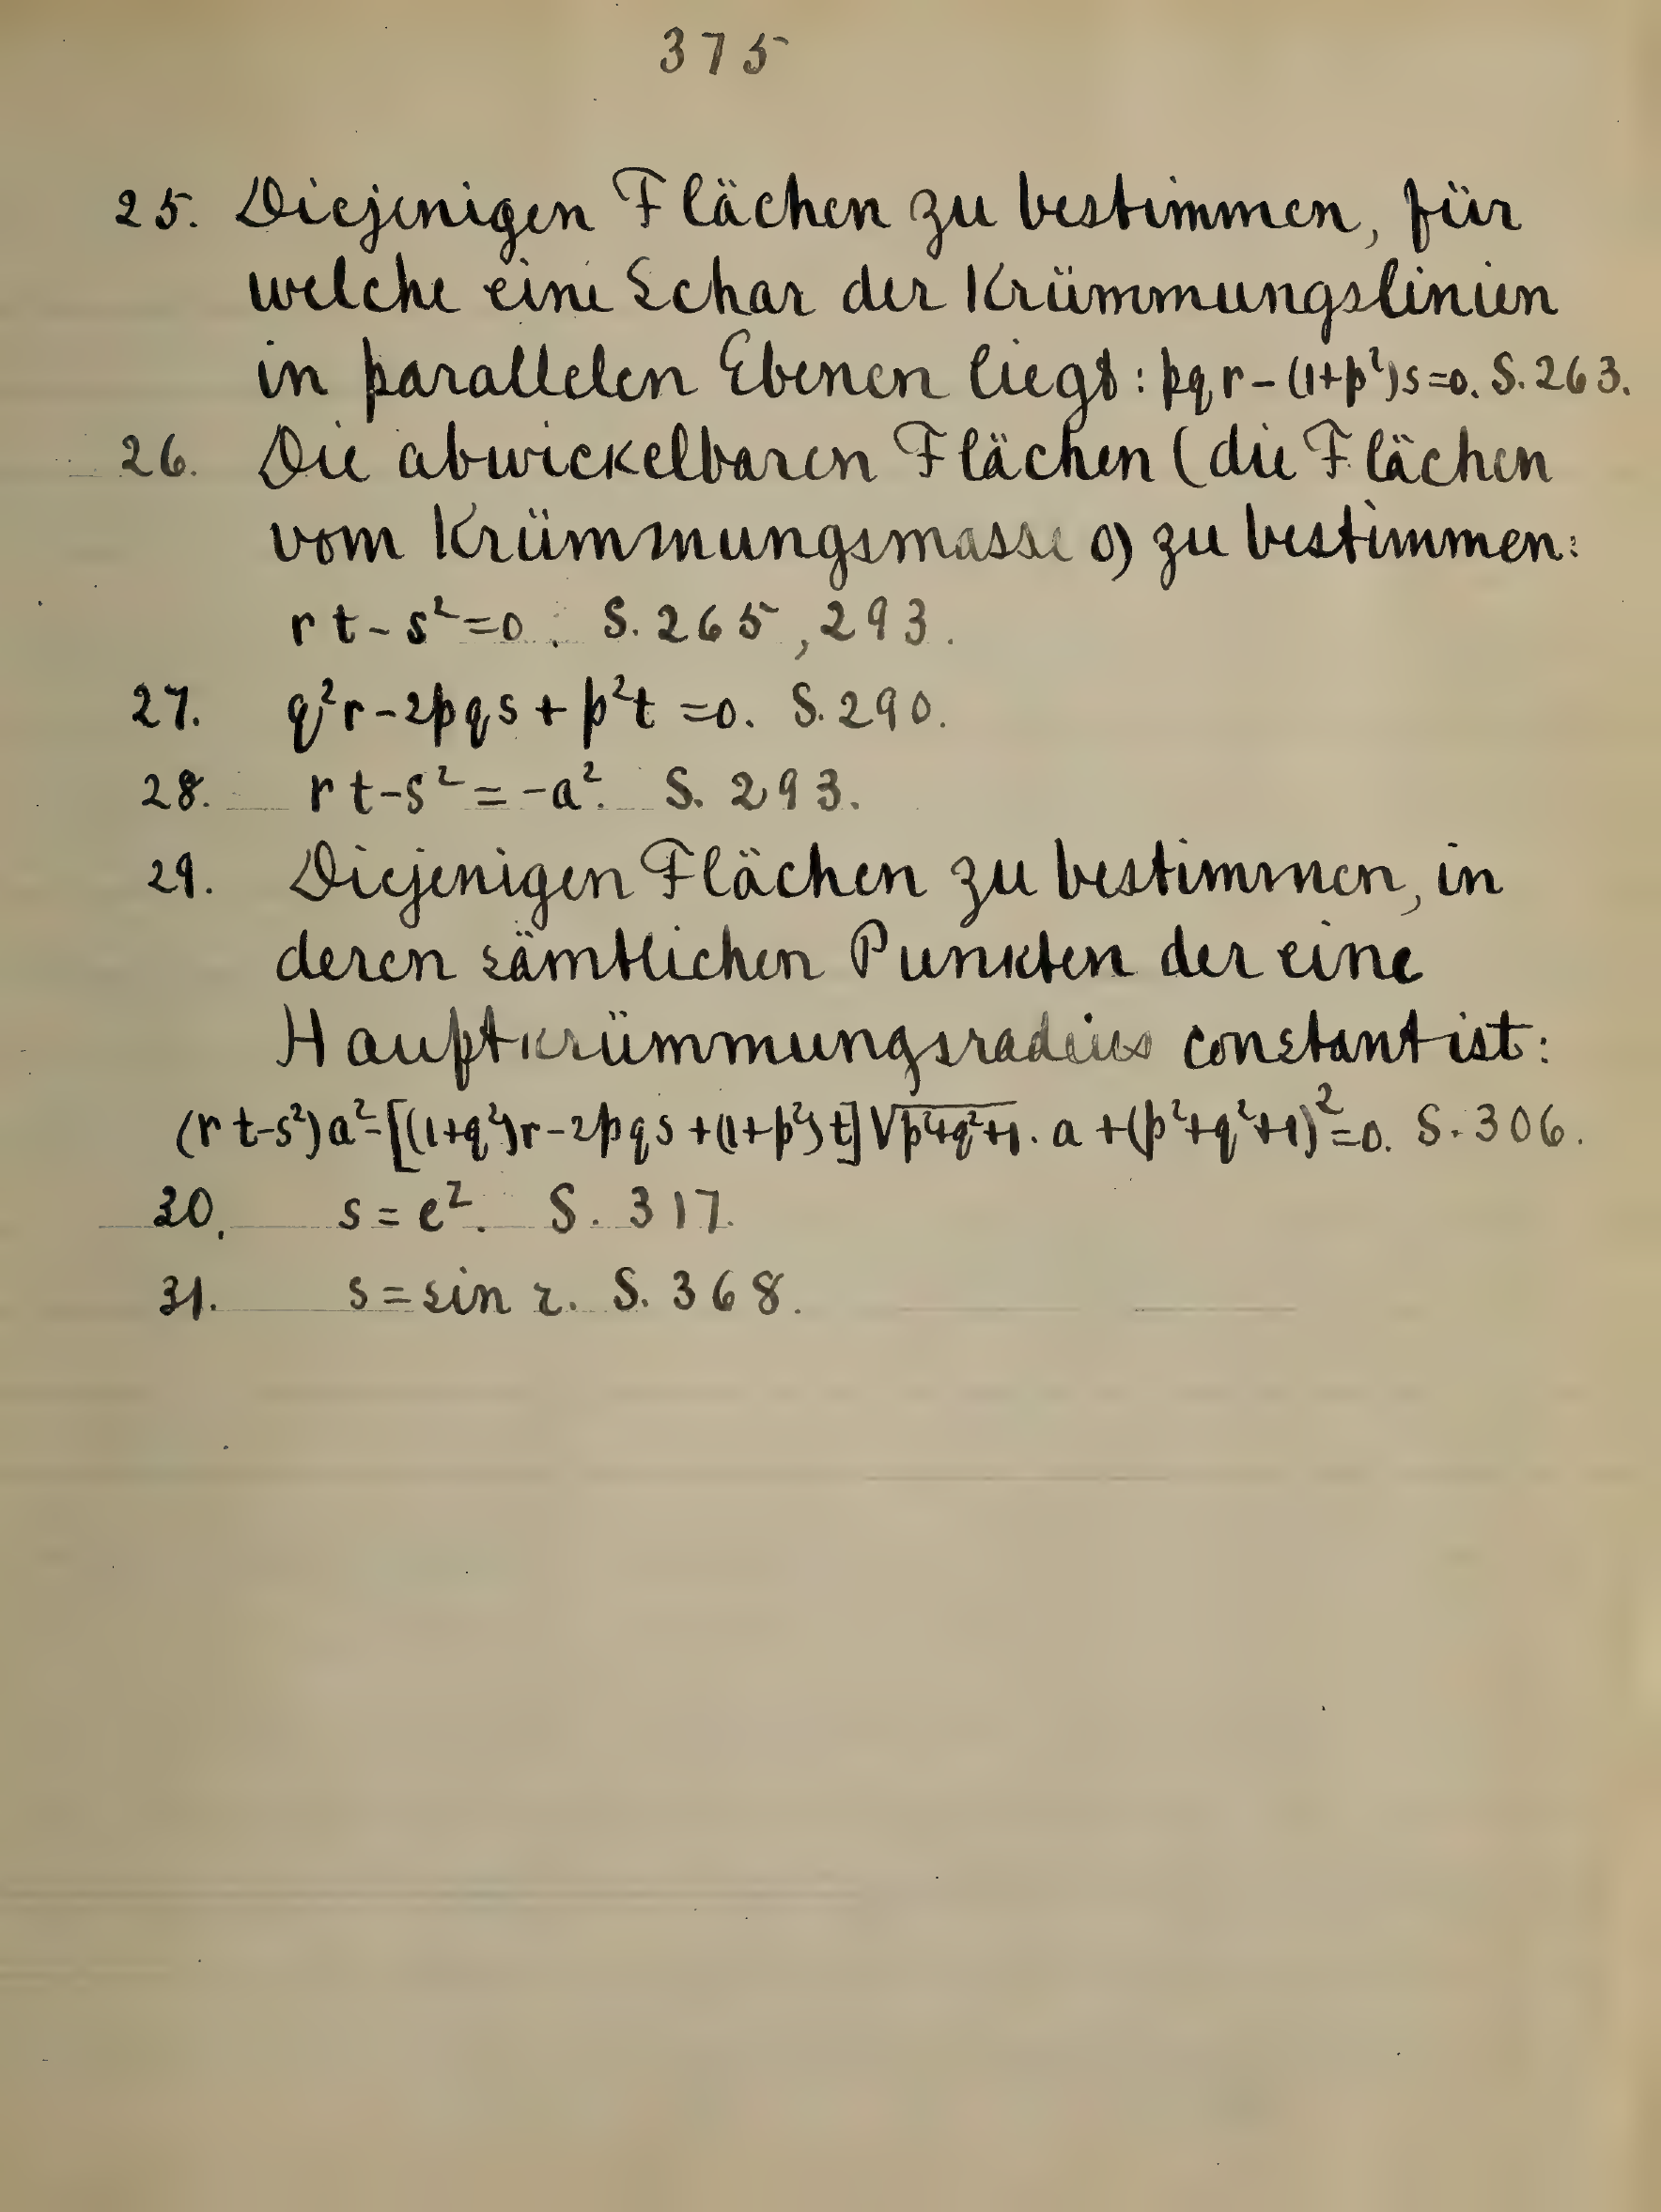 375
25. Diejenigen Flächen zu bestimmen, für
welche eine Schar der Krümmungslinien
in parallelen Ebenen liegt: pqr-(1+p²)s=0. S.263.
26. Die abwickelbaren Flächen (die Flächen
vom Krümmungsmasse 0) zu bestimmen:
rt-s²=0. S.265,293.
27. q²r-2pqs+p²t=0. S.290.
28. rt-s²=-a². S.293.
29. Diejenigen Flächen zu bestimmen, in
deren sämtlichen Punkten der eine
Hauptkrümmungsradius constant ist:
(rt-s²)a²-[(1+q²)r-2pqs+(1+p²)t]√p²+q²+1. a+(p²+q²+1)²=0. S.306.
30. s=eᶻ. S.317.
31. s=sin z. S.368.